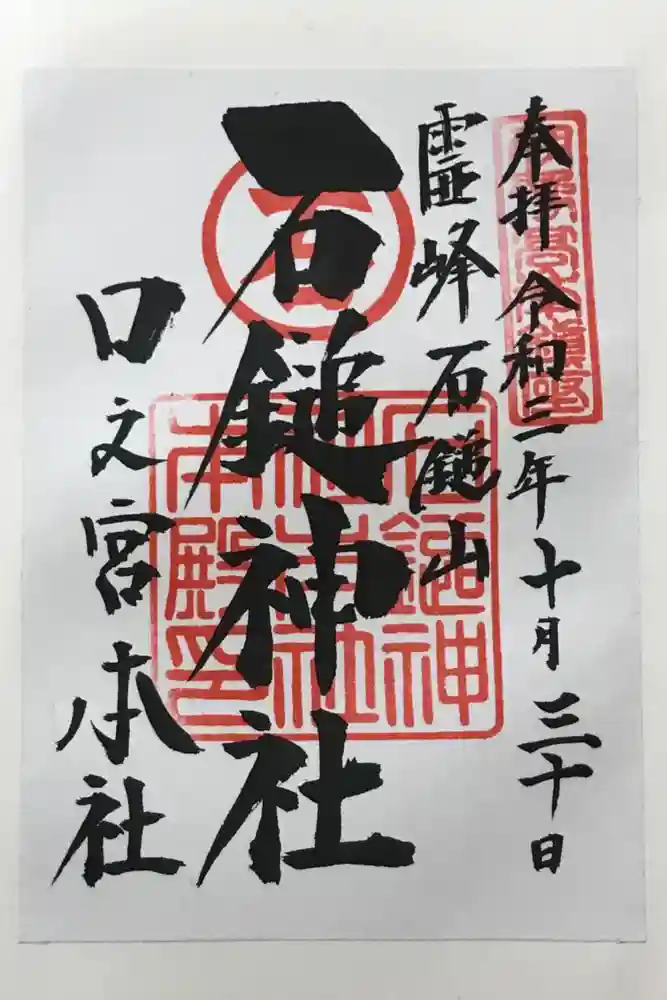 奉拝 令和三年十月三十日
霊峰石鎚山
石鎚神社
口之宮本社
石鎚神
本殿印